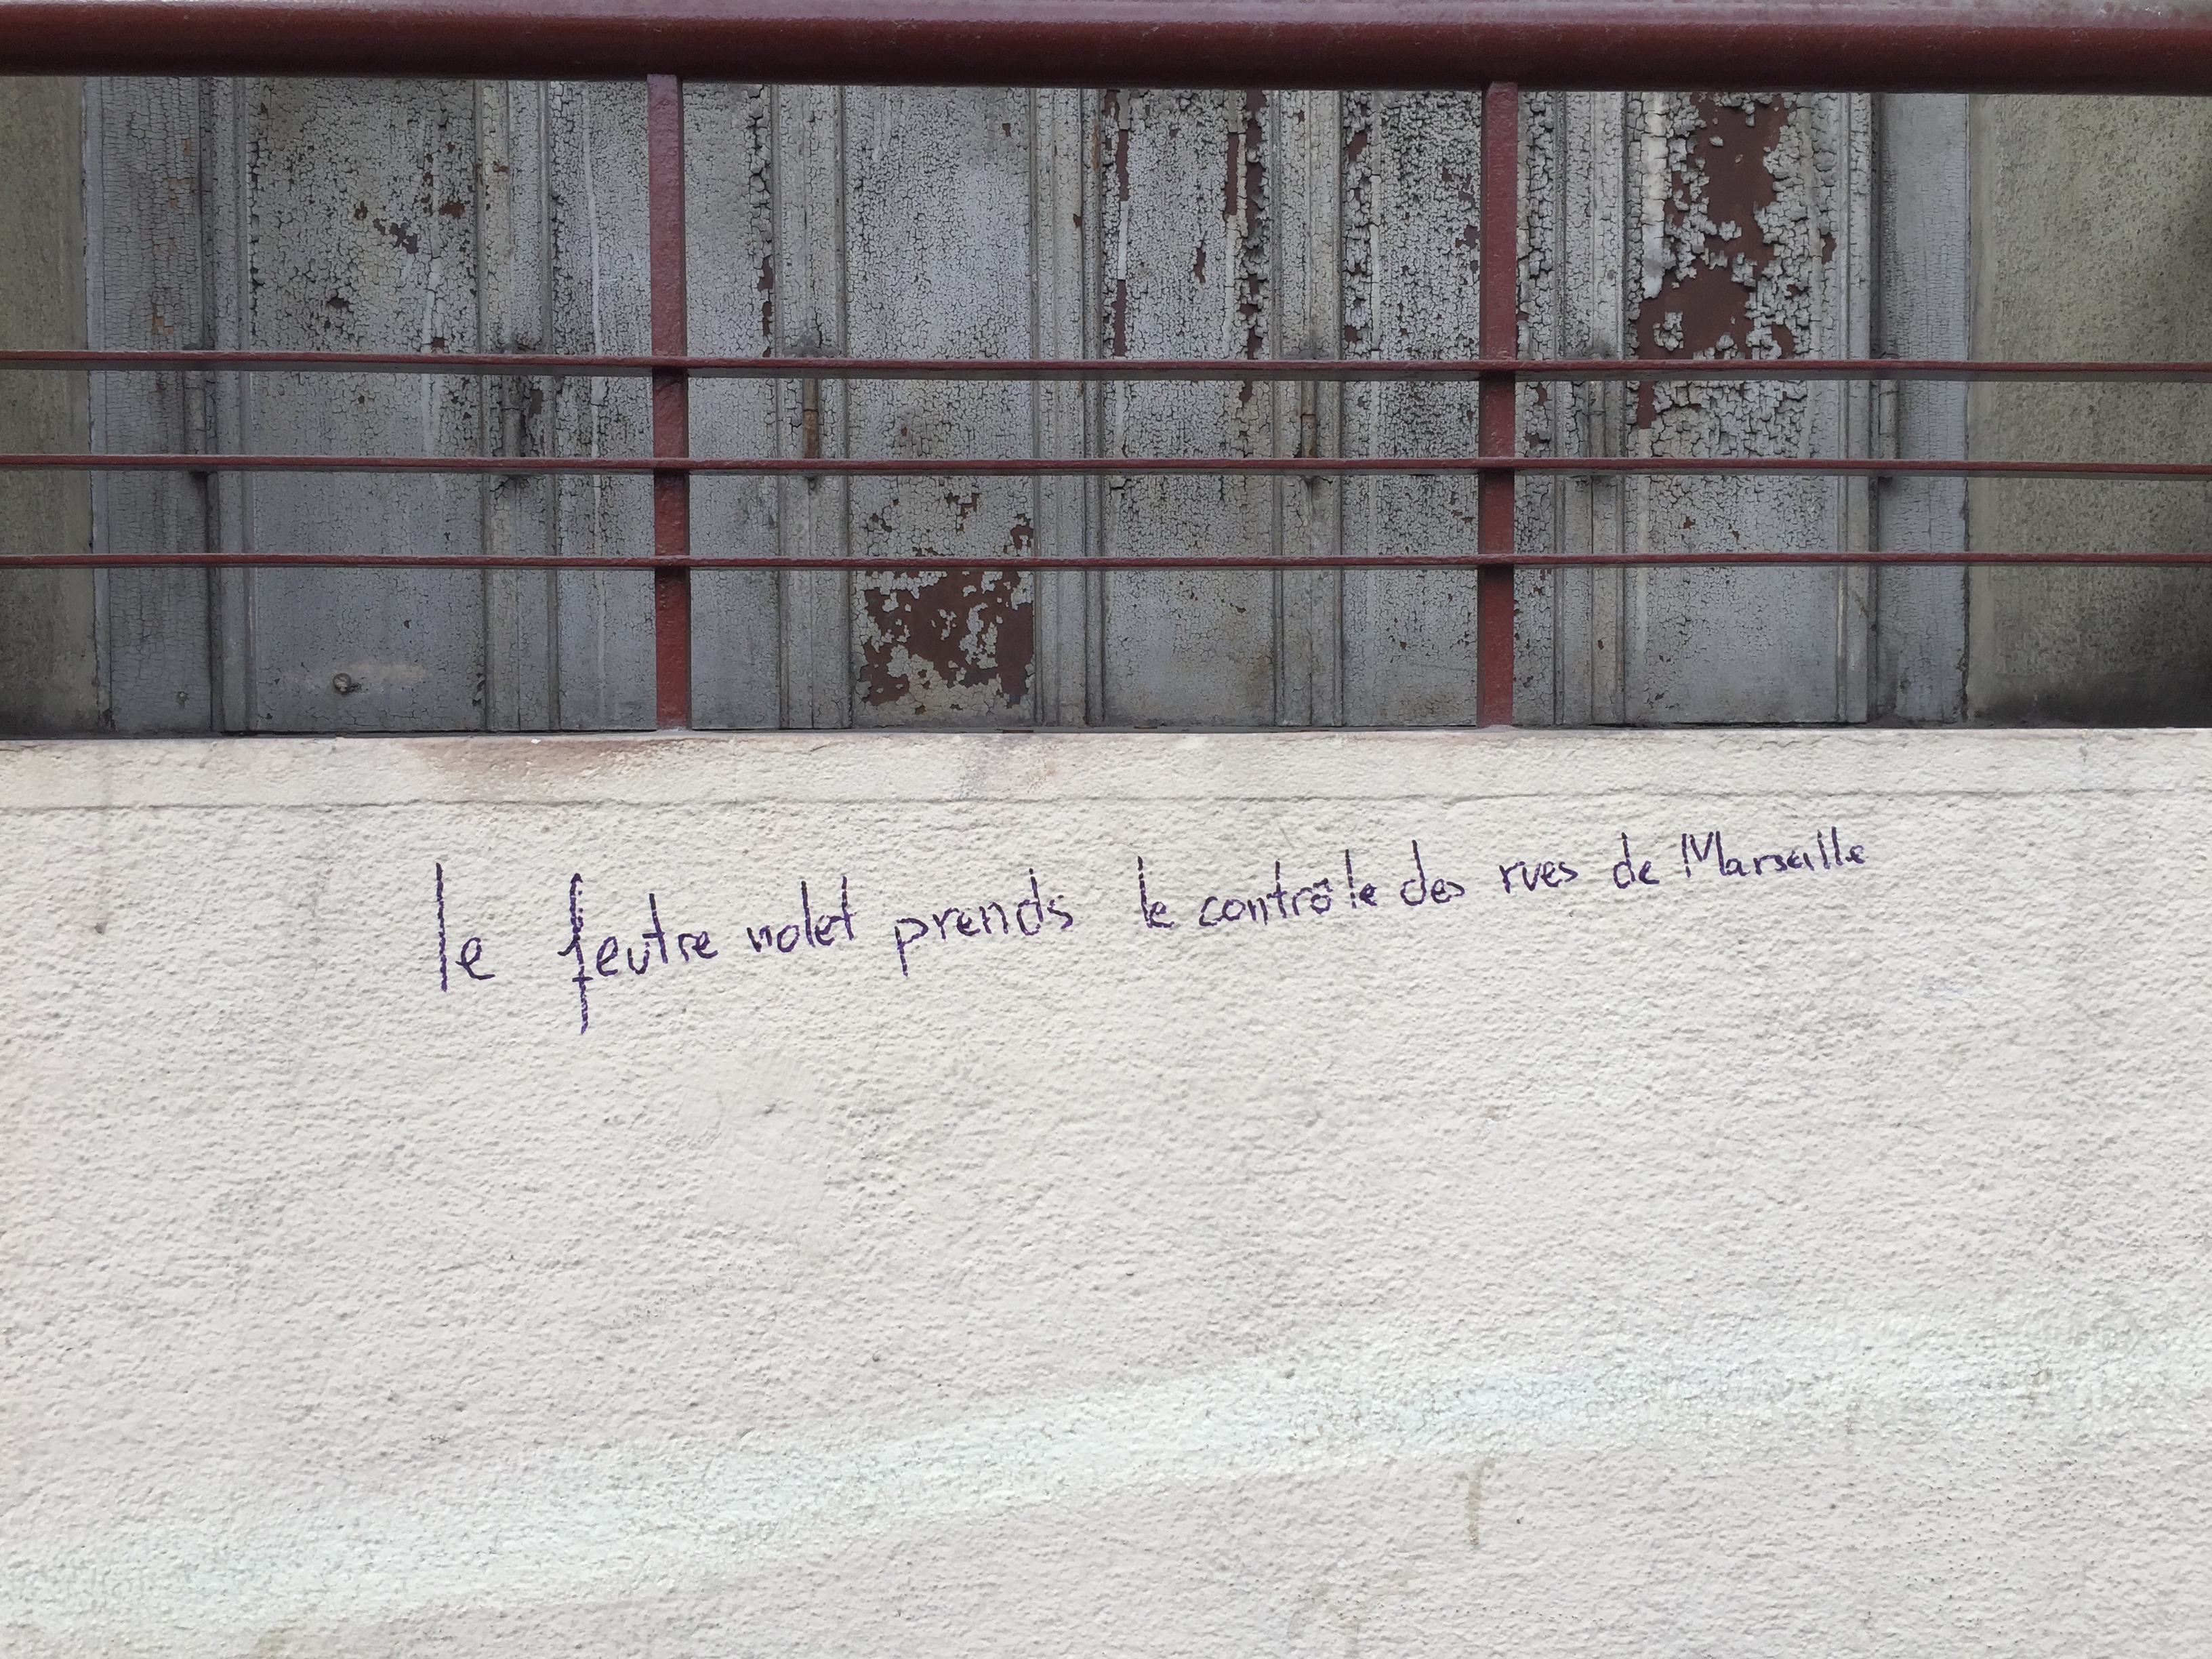 le feutre violet prends le contrôle des rues de Marseille